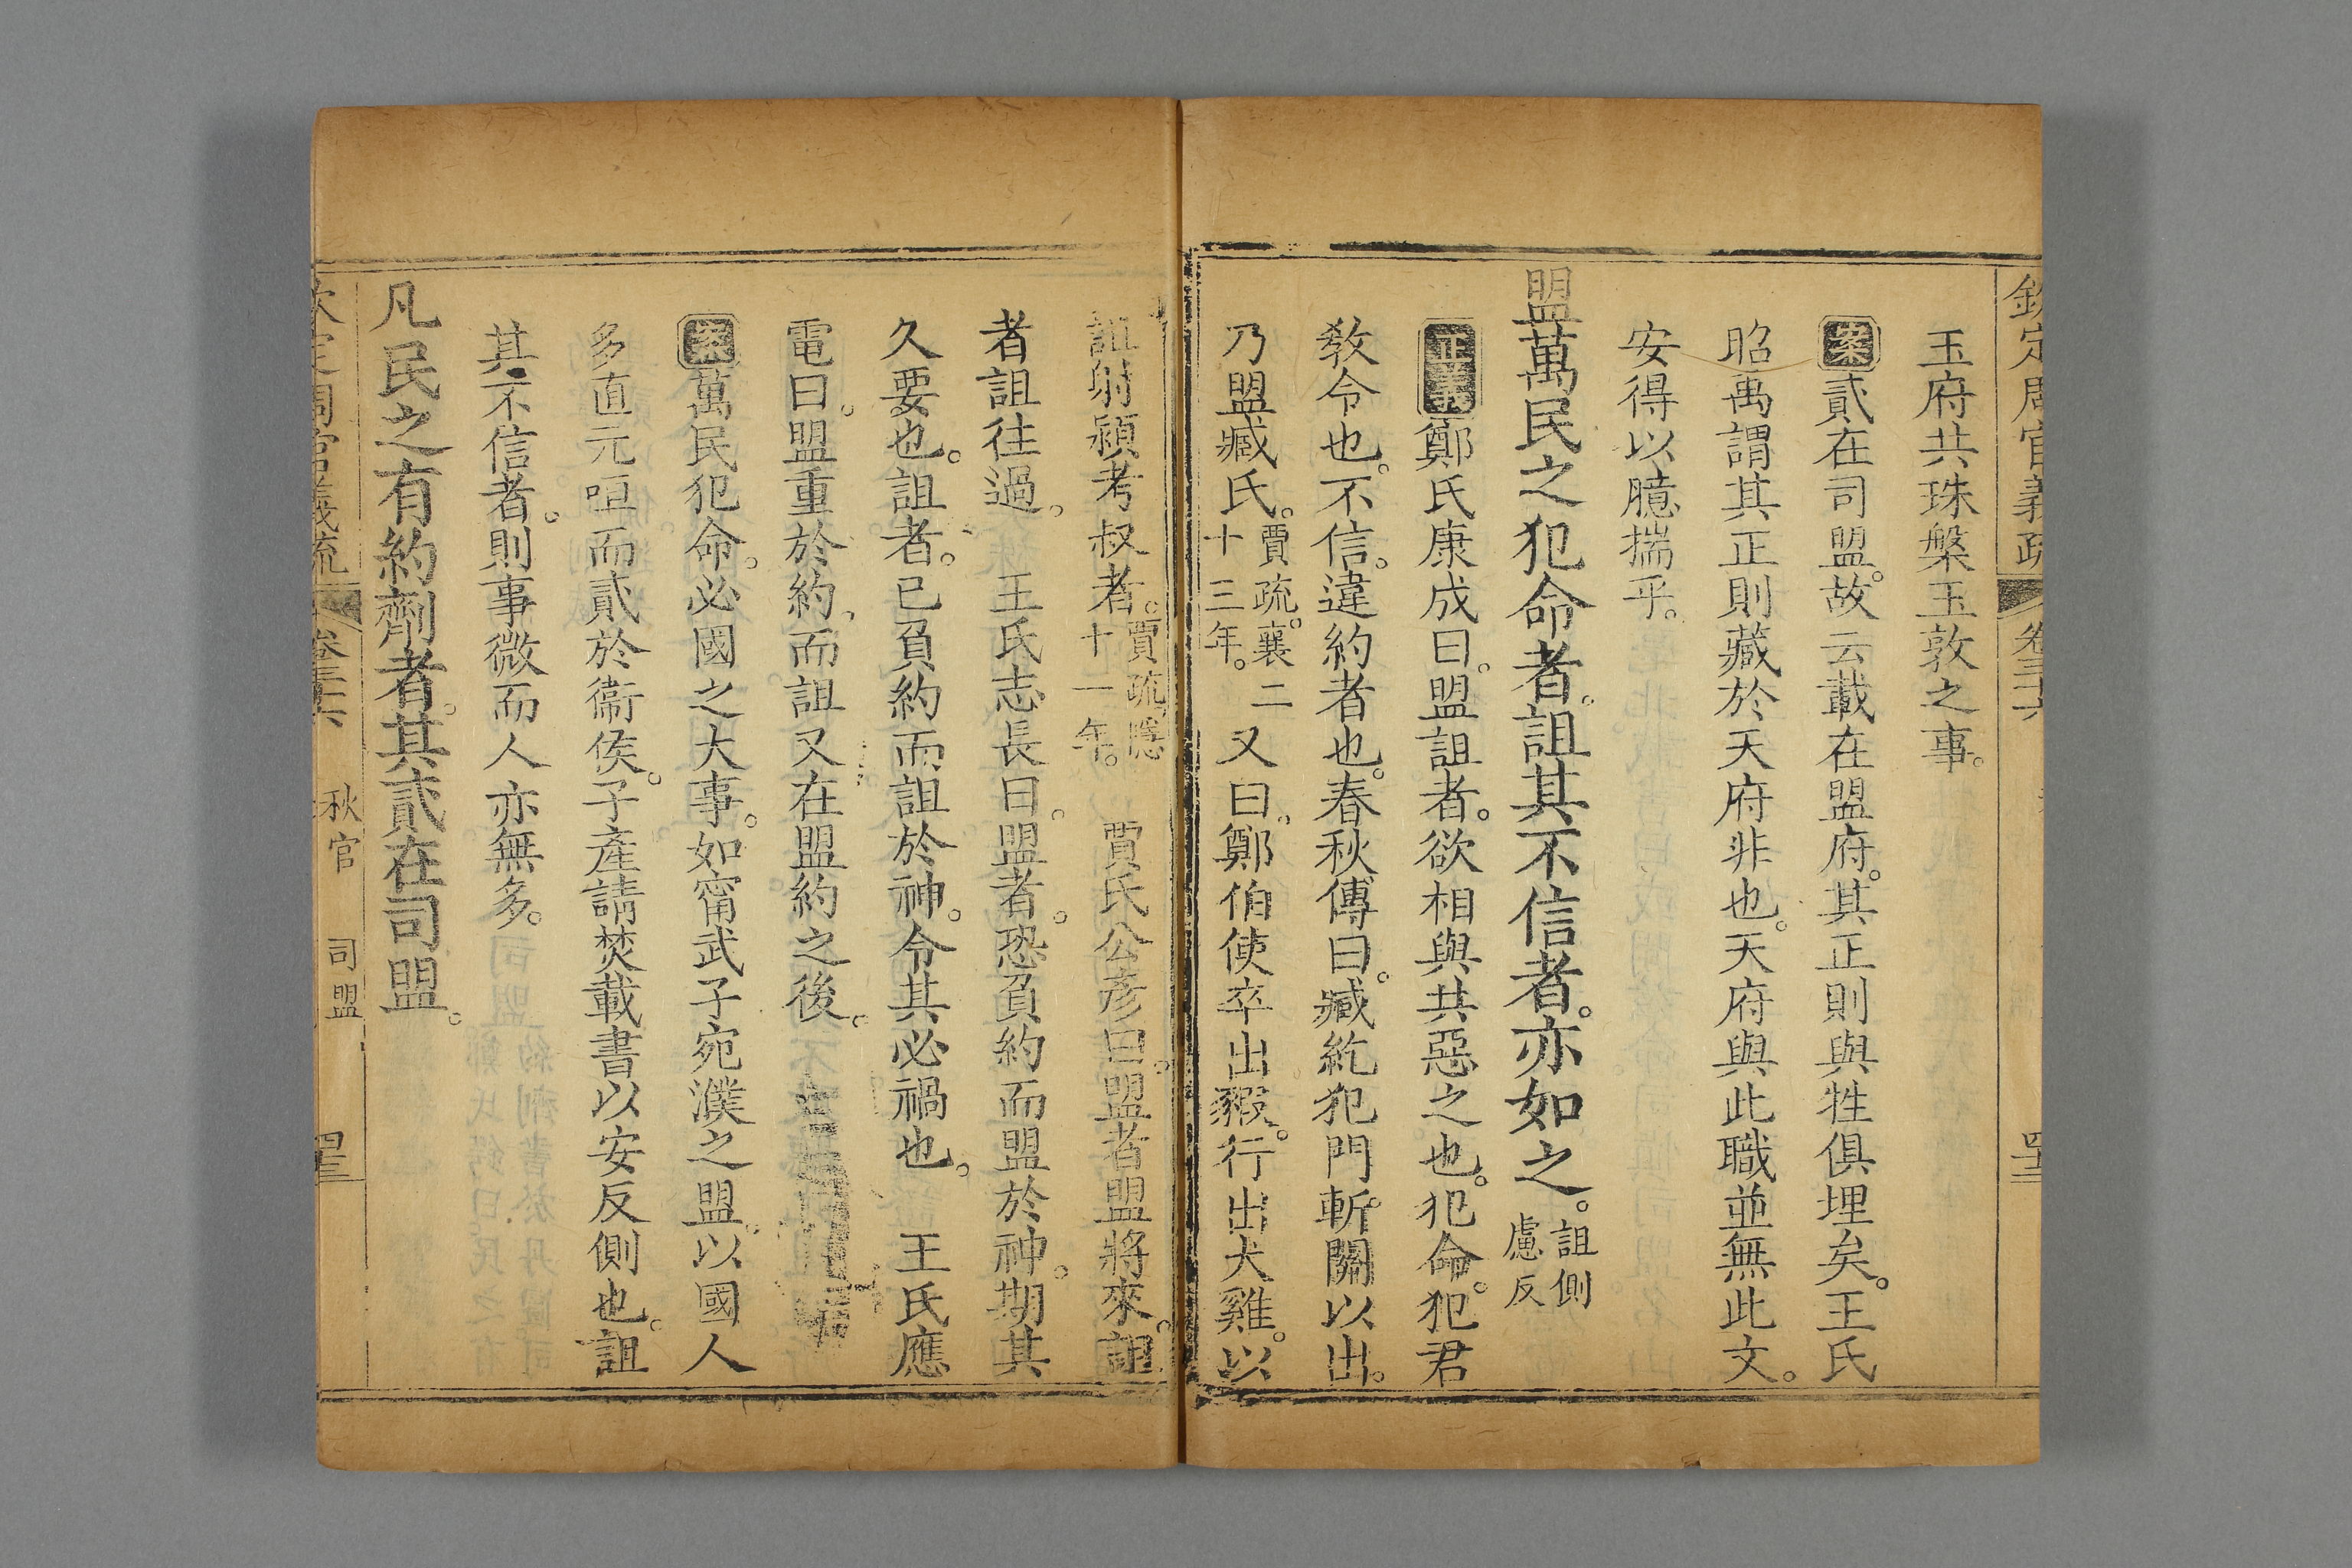 欽定周官義疏 卷三十六
玉府共珠槃玉敦之事。
案貳在司盟。故云載在盟府。其正則與牲俱埋矣。王氏
昭禹謂其正則藏於天府非也。天府與此職並無此文。
安得以臆揣乎。
盟萬民之犯命者。詛其不信者。亦如之。詛側慮反
正義鄭氏康成曰。盟詛者。欲相與共惡之也。犯命。犯君
教令也。不信。違約者也。春秋傳曰。臧紇犯門斬關以出。
乃盟臧氏。賈疏。襄二十三年。又曰。鄭伯使卒出豭。行出犬雞。以
詛射潁考叔者。賈疏。隱十一年。賈氏公彥曰。盟者盟將來。詛
者詛往過。王氏志長曰。盟者。恐負約而盟於神。期其
久要也。詛者。已負約而詛於神。令其必禍也。王氏應
電曰。盟重於約。而詛又在盟約之後。
案萬民犯命。必國之大事。如甯武子宛濮之盟。以國人
多直元咺而貳於衞侯。子產請焚載書以安反側也。詛
其不信者。則事微而人亦無多。
凡民之有約劑者。其貳在司盟。
欽定周官義疏 卷三十六 秋官 司盟